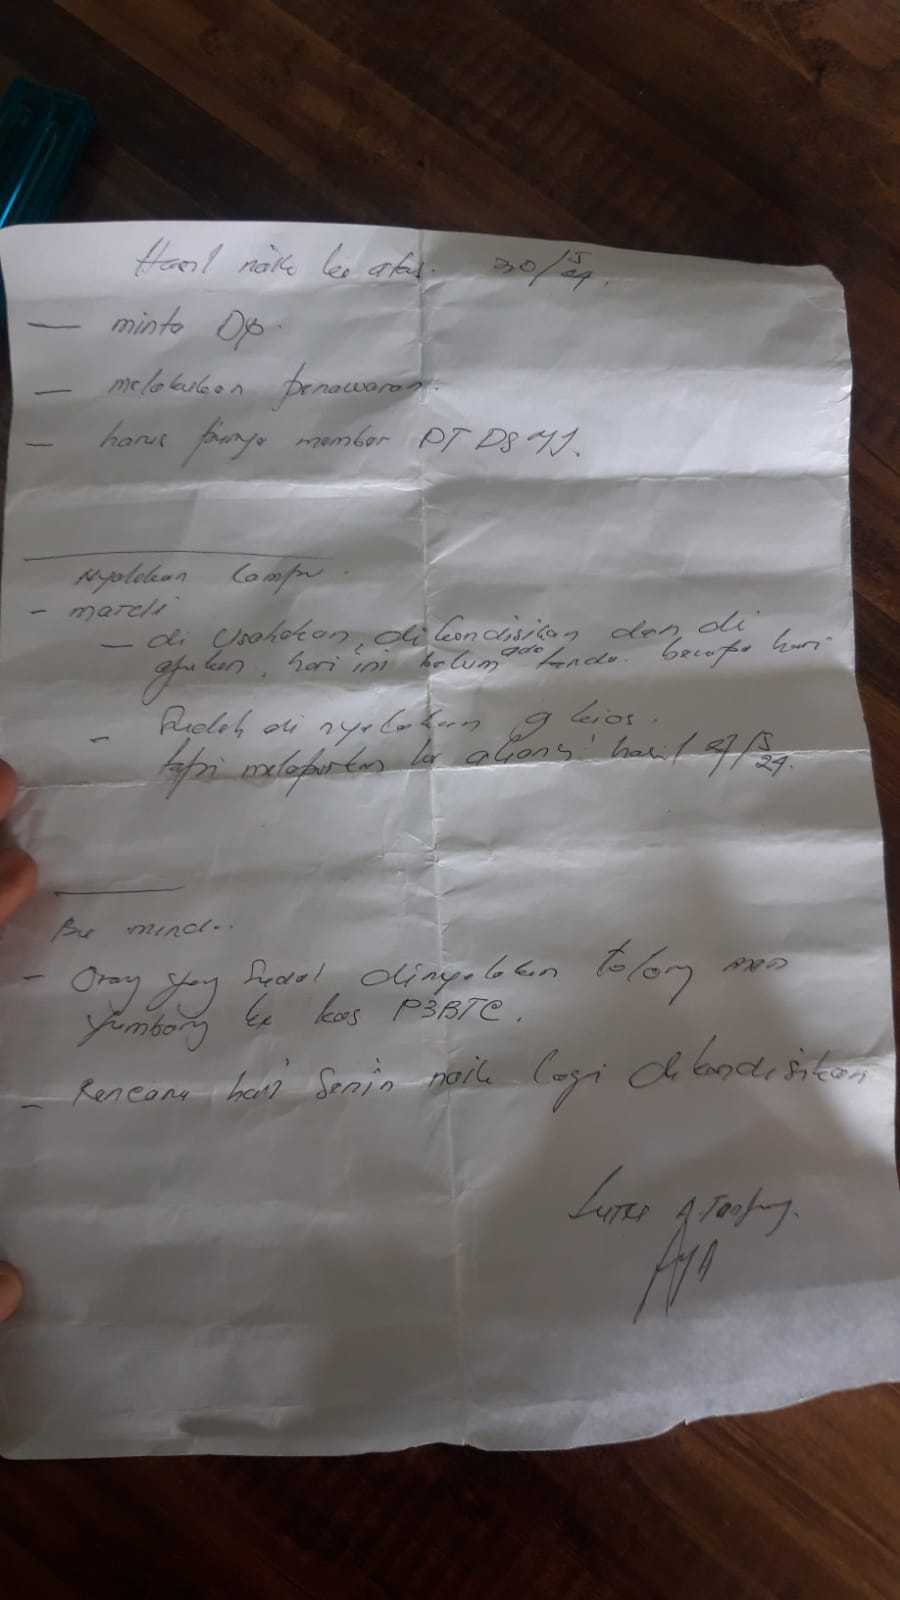 Hasil naik ke atas. 30/5/24.
— minta DP.
— melakukan penawaran.
— harus punya member PT DS
Nyalakan Lampu.
- mardi
— di Usahakan, di kondisikan dan di
ajukan, hari ini belum ada tanda. berapa hari
- Sudah di nyalakan 9 kios.
tapi melaporkan ke hasil 27/5/24.
Bu
- Orang yang Sudah dinyalakan tolong men
yumbang ke kas P3BTC.
- Rencana hari Senin naik lagi dikondisikan
A.